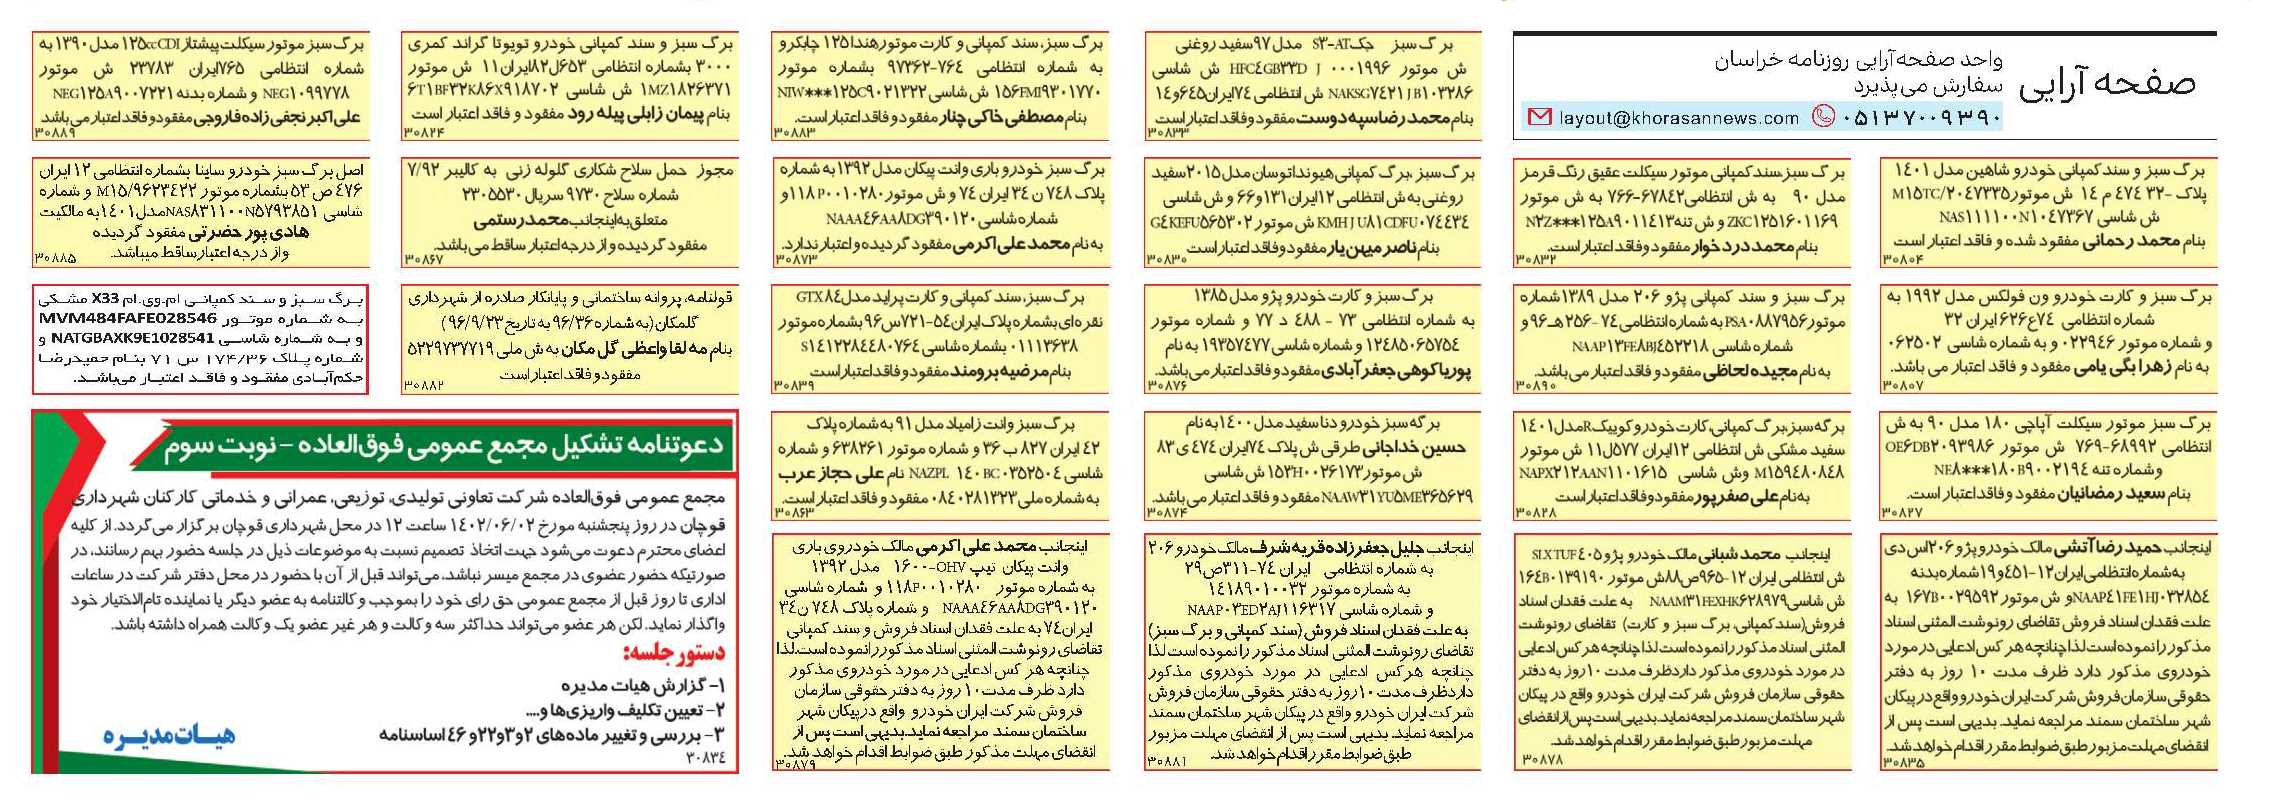 صفحه آرایی
واحد صفحه‌آرایی روزنامه خراسان
سفارش می‌پذیرد
layout@khorasannews.com ۰۵۱۳۷۰۰۹۳۹۰
برگ سبز و سند کمپانی خودرو شاهین مدل ۱۴۰۱
پلاک -۳۲ ۴۷۴ م ۱۴ ش موتور M۱۵TC/۲۰۴۷۳۳۵
ش شاسی NAS۱۱۱۱۰۰N۱۰۴۷۳۶۷
بنام محمد رحمانی مفقود شده و فاقد اعتبار است
۳۰۸۰۴
برگ سبز و کارت خودرو ون فولکس مدل ۱۹۹۲ به
شماره انتظامی ۷۴ع۶۲۶ ایران ۳۲
و شماره موتور ۰۲۲۹۴۶ و به شماره شاسی ۰۶۲۵۰۲
به نام زهرا بگی یامی مفقود و فاقد اعتبار می باشد.
۳۰۸۰۷
برگ سبز موتور سیکلت آپاچی ۱۸۰ مدل ۹۰ به ش
انتظامی ۶۸۹۹۲-۷۶۹ ش موتور OE۶DB۲۰۹۳۹۸۶
وشماره تنه NE۸***۱۸۰B۹۰۰۲۱۹۴
بنام سعید رمضانیان مفقود و فاقد اعتبار است.
۳۰۸۲۷
اینجانب حمید رضا آتشی مالک خودرو پژو ۲۰۶اس دی
به‌شماره‌انتظامی‌ایران۱۲-۴۵۱و۱۹شماره‌بدنه
NAAP۴۱FE۱HJ۰۳۲۸۵۴و ش موتور ۱۶۷B۰۰۲۹۵۹۲ به
علت فقدان اسناد فروش تقاضای رونوشت المثنی اسناد
مذکور را نموده‌است لذا چنانچه هر کس ادعایی در مورد
خودروی مذکور دارد ظرف مدت ۱۰ روز به دفتر
حقوقی‌سازمان‌فروش‌شرکت‌ایران‌خودرو‌واقع‌در‌پیکان
شهر ساختمان سمند مراجعه نماید. بدیهی است پس از
انقضای‌مهلت‌مزبور‌طبق‌ضوابط‌مقرر‌اقدام‌خواهد‌شد.
۳۰۸۳۵
برگ سبز،سند کمپانی موتور سیکلت عقیق رنگ قرمز
مدل ۹۰ به ش انتظامی۶۷۸۴۲-۷۶۶ به ش موتور
ZKC۱۲۵۱۶۰۱۱۶۹ و ش تنه N۲Z***۱۲۵A۹۰۱۱۴۱۳
بنام محمد درد خوار مفقود و فاقد اعتبار است.
۳۰۸۳۲
برگ سبز و سند کمپانی پژو ۲۰۶ مدل ۱۳۸۹شماره
موتورPSA۰۸۸۷۹۵۶به شماره انتظامی۷۴ -۲۵۶هـ ۹۶ و
شماره شاسی NAAP۱۳FE۸BJ۴۵۲۲۱۸
به نام مجیده لحاظی مفقود و فاقد اعتبار می باشد.
۳۰۸۹۰
برگه سبز،برگ کمپانی،کارت خودرو کوییکRمدل۱۴۰۱
سفید مشکی ش انتظامی ۱۲ایران ۵۷۷ل۱۱ ش موتور
M۱۵۹۴۸۰۸۴۸ وش شاسی NAPX۲۱۲AAN۱۱۰۱۶۱۵
به نام علی صفرپور مفقود و فاقد اعتبار است
۳۰۸۲۸
اینجانب محمد شبانی مالک خودرو پژو ۴۰۵ SLXTUF
ش انتظامی ایران ۱۲-۹۶۵ص۸۸ش موتور ۱۶۴B۰۱۳۹۱۹۰
ش شاسیNAAM۳۱FEXHK۶۲۸۹۷۹ به علت فقدان اسناد
فروش(سندکمپانی،برگ سبز و کارت) تقاضای رونوشت
المثنی اسناد مذکور را نموده است لذا چنانچه هر کس ادعایی
در مورد خودروی مذکور دارد ظرف مدت ۱۰روز به دفتر
حقوقی سازمان فروش شرکت ایران خودرو واقع در پیکان
شهر ساختمان سمند مراجعه نماید.بدیهی است پس از انقضای
مهلت مزبور طبق ضوابط مقرر اقدام خواهد شد.
۳۰۸۷۸
برگ سبز جکS۳-AT مدل ۹۷سفید روغنی
ش موتور HFC۴GB۳۳D J ۰۰۰۱۹۹۶ ش شاسی
NAKSG۷۴۲۱JB۱۰۳۲۸۶ ش انتظامی ۷۴ایران۶۴۵و۱۴
بنام محمد رضا سپه دوست مفقود و فاقد اعتبار است
۳۰۸۳۳
برگ سبز،برگ کمپانی هیوندا توسان مدل۲۰۱۵سفید
روغنی به ش انتظامی ۱۲ایران۱۳۱و۶۶ و ش شاسی
KMHJU۸۱CDFU۰۷۴۴۳۴ ش موتور G۴KEFU۵۶۵۳۰۲
بنام ناصر میهن یار مفقود و فاقد اعتبار است
۳۰۸۳۰
برگ سبز و کارت خودرو پژو مدل ۱۳۸۵
به شماره انتظامی ۷۳ - ۴۸۸ د ۷۷ و شماره موتور
۱۲۴۸۵۰۶۵۷۵۴ و شماره شاسی ۱۹۳۵۷۴۷۷ به نام
پوریا کوهی جعفر آبادی مفقود و فاقد اعتبار می‌باشد.
۳۰۸۷۶
برگه سبز خودرو دنا سفید مدل ۱۴۰۰به نام
حسین خداجانی طرقی ش پلاک ۷۴ایران ۴۷۴ ی ۸۳
ش موتور۱۵۳H۰۰۲۶۱۷۳ش شاسی
NAAW۳۱YU۵ME۳۶۵۶۲۹ مفقود و فاقد اعتبار می باشد.
۳۰۸۷۴
اینجانب جلیل جعفرزاده قریه شرف مالک خودرو ۲۰۶
به شماره انتظامی ایران ۷۴-۳۱۱ص۲۹
به شماره موتور ۱۴۱۸۹۰۱۰۰۳۲
و شماره شاسی NAAP۰۳ED۲AJ۱۱۶۳۱۷
به علت فقدان اسناد فروش (سند کمپانی و برگ سبز)
تقاضای رونوشت المثنی اسناد مذکور را نموده است لذا
چنانچه هرکس ادعایی در مورد خودروی مذکور
دارد ظرف مدت ۱۰روز به دفتر حقوقی سازمان فروش
شرکت ایران خودرو واقع در پیکان شهر ساختمان سمند
مراجعه نماید. بدیهی است پس از انقضای مهلت مزبور
طبق ضوابط مقرر اقدام خواهد شد.
۳۰۸۸۱
برگ سبز،سند کمپانی و کارت موتور هندا ۱۲۵ چابکرو
به شماره انتظامی ۷۶۴-۹۷۳۶۲ بشماره موتور
۱۵۶FMI۹۳۰۱۷۷۰ ش شاسی NIW***۱۲۵C۹۰۲۱۳۲۲
بنام مصطفی خاکی چنار مفقود و فاقد اعتبار است.
۳۰۸۸۳
برگ سبز خودرو باری وانت پیکان مدل ۱۳۹۲ به شماره
پلاک ۷۴۸ ن ۳۴ ایران ۷۴ و ش موتور ۱۱۸P۰۰۱۰۲۸۰ و
شماره شاسی NAAA۴۶AA۸DG۳۹۰۱۲۰
به نام محمد علی اکرمی مفقود گردیده و اعتبار ندارد.
۳۰۸۷۳
برگ سبز، سند کمپانی و کارت پراید مدل۸۴ GTX
نقره ای بشماره پلاک ایران۵۴-۷۲۱س۹۶ بشماره موتور
۰۱۱۱۳۶۳۸ بشماره شاسی S۱۴۱۲۲۸۴۴۸۰۷۶۴
بنام مرضیه برومند مفقود و فاقد اعتبار است
۳۰۸۳۹
برگ سبز وانت زامیاد مدل ۹۱ به شماره پلاک
۴۲ ایران ۸۲۷ ب ۳۶ و شماره موتور ۶۳۸۲۶۱ و شماره
شاسی NAZPL ۱۴۰BC۰۳۵۲۵۰۴ نام علی حجاز عرب
به شماره ملی ۰۸۴۰۲۸۱۳۲۳ مفقود و فاقد اعتبار است.
۳۰۸۶۳
اینجانب محمد علی اکرمی مالک خودروی باری
وانت پیکان تیپ ۱۶۰۰-OHV مدل ۱۳۹۲
به شماره موتور ۱۱۸P۰۰۱۰۲۸۰ و شماره شاسی
NAAA۴۶AA۸DG۳۹۰۱۲۰ و شماره پلاک ۷۴۸ ن۳۴
ایران۷۴ به علت فقدان اسناد فروش و سند کمپانی
تقاضای رونوشت المثنی اسناد مذکوررانموده است.لذا
چنانچه هر کس ادعایی در مورد خودروی مذکور
دارد ظرف مدت۱۰روز به دفتر حقوقی سازمان
فروش شرکت ایران خودرو واقع درپیکان شهر
ساختمان سمند مراجعه نماید.بدیهی است پس از
انقضای مهلت مذکور طبق ضوابط اقدام خواهد شد.
۳۰۸۷۹
برگ سبز و سند کمپانی خودرو تویوتا گراند کمری
۳۰۰۰ بشماره انتظامی ۶۵۳ل۸۲ایران۱۱ ش موتور
۱MZ۱۸۲۶۳۷۱ ش شاسی ۶T۱BF۳۲K۸۶X۹۱۸۷۰۲
بنام پیمان زابلی پیله رود مفقود و فاقد اعتبار است
۳۰۸۲۴
مجوز حمل سلاح شکاری گلوله زنی به کالیبر ۷/۹۲
شماره سلاح ۹۷۳۰ سریال ۲۳۰۵۵۳۰
متعلق به اینجانب محمد رستمی
مفقود گردیده و از درجه اعتبار ساقط می باشد.
۳۰۸۶۷
قولنامه، پروانه ساختمانی و پایانکار صادره از شهرداری
گلمکان (به شماره ۹۶/۳۶ به تاریخ ۹۶/۹/۲۳ )
بنام مه لقا واعظی گل مکان به ش ملی ۵۲۲۹۷۳۷۷۱۹
مفقود و فاقد اعتبار است
۳۰۸۸۲
برگ سبز موتور سیکلت پیشتاز ۱۲۵ccCDI مدل ۱۳۹۰ به
شماره انتظامی ۷۶۵ایران ۲۳۷۸۳ ش موتور
NEG۱۰۹۹۷۷۸ و شماره بدنه NEG۱۲۵A۹۰۰۷۲۲۱
علی اکبر نجفی زاده فاروجی مفقود و فاقد اعتبار می باشد
۳۰۸۸۹
اصل برگ سبز خودرو ساینا بشماره انتظامی ۱۲ ایران
۴۷۶ ص ۵۳ بشماره موتور M۱۵/۹۶۲۳۴۲۲ و شماره
شاسی NAS۸۳۱۱۰۰N۵۷۹۳۸۵۱مدل۱۴۰۱به مالکیت
هادی پور حضرتی مفقود گردیده
و از درجه اعتبار ساقط میباشد.
۳۰۸۸۵
برگ سبز و سند کمپانی ام.وی.ام X33 مشکی
به شماره موتور MVM484FAFE028546
و به شماره شاسی NATGBAXK9E1028541 و
شماره پلاک ۱۷۴/۳۶ س ۷۱ بنام حمیدرضا
حکم‌آبادی مفقود و فاقد اعتبار می‌باشد.
دعوتنامه تشکیل مجمع عمومی فوق‌العاده – نوبت سوم
مجمع عمومی فوق‌العاده شرکت تعاونی تولیدی، توزیعی، عمرانی و خدماتی کارکنان شهرداری
قوچان در روز پنجشنبه مورخ ۱۴۰۲/۰۶/۰۲ ساعت ۱۲ در محل شهرداری قوچان برگزار می‌گردد. از کلیه
اعضای محترم دعوت می‌شود جهت اتخاذ تصمیم نسبت به موضوعات ذیل در جلسه حضور بهم رسانند، در
صورتیکه حضور عضوی در مجمع میسر نباشد، می‌تواند قبل از آن با حضور در محل دفتر شرکت در ساعات
اداری تا روز قبل از مجمع عمومی حق رای خود را بموجب وکالتنامه به عضو دیگر یا نماینده تام‌الاختیار خود
واگذار نماید. لکن هر عضو می‌تواند حداکثر سه وکالت و هر غیر عضو یک وکالت همراه داشته باشد.
دستور جلسه:
۱- گزارش هیات مدیره
۲- تعیین تکلیف واریزی‌ها و....
۳- بررسی و تغییر ماده‌های ۲و۳و۲۲و ۴۶ اساسنامه
هیات مدیره
۳۰۸۳۴